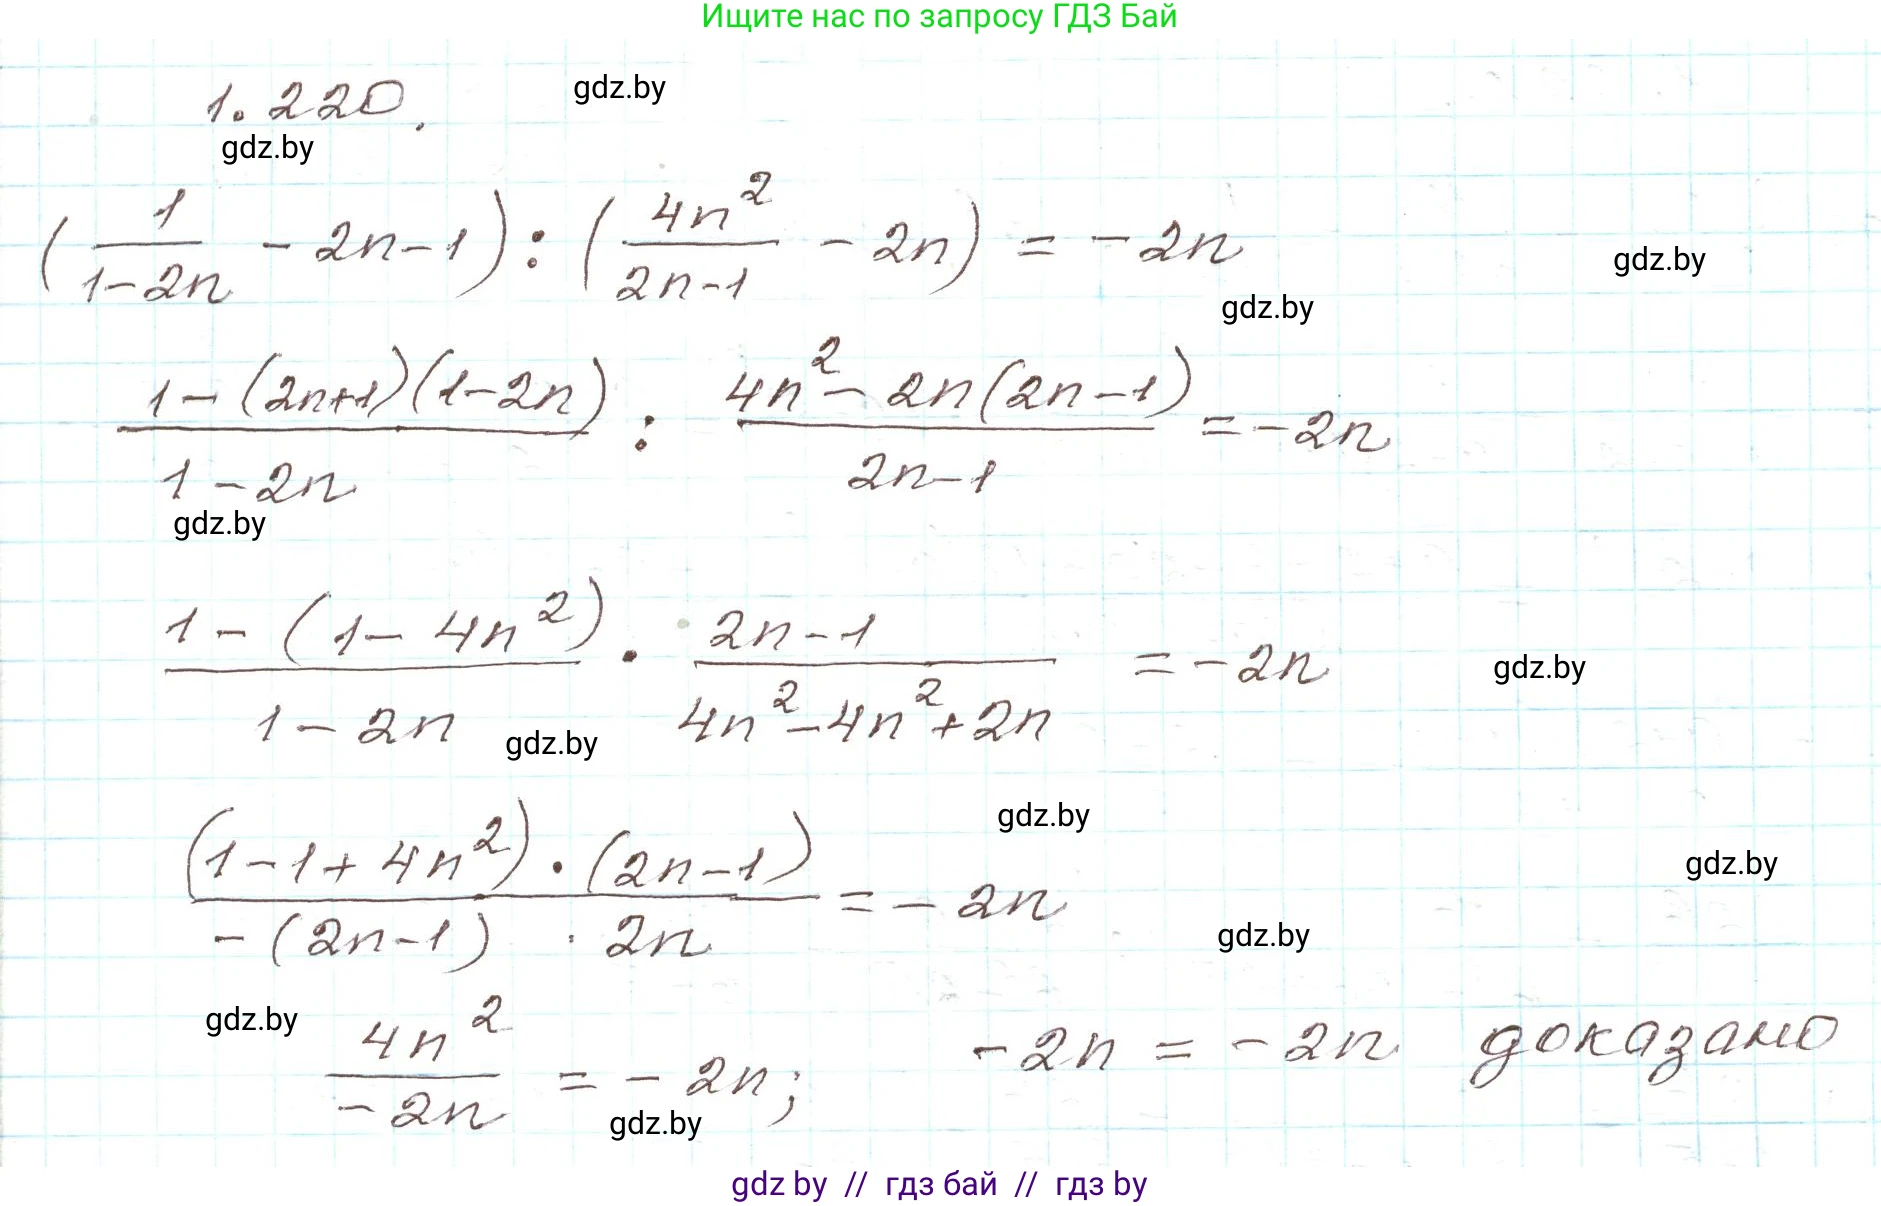 Ищите нас по запросу ГДЗ Бай
1.220.
gdz.by
gdz.by
(1/(1-2n) - 2n-1) : (4n²/(2n-1) - 2n) = -2n
gdz.by
gdz.by
(1-(2n+1)(1-2n))/(1-2n) : (4n²-2n(2n-1))/(2n-1) = -2n
gdz.by
(1-(1-4n²))/(1-2n) · (2n-1)/(4n²-4n²+2n) = -2n
gdz.by
gdz.by
gdz.by
((1-1+4n²)·(2n-1))/(-(2n-1)·2n) = -2n
gdz.by
gdz.by
gdz.by
4n²/(-2n) = -2n; -2n = -2n доказано
gdz.by
gdz by // гдз бай // гдз by